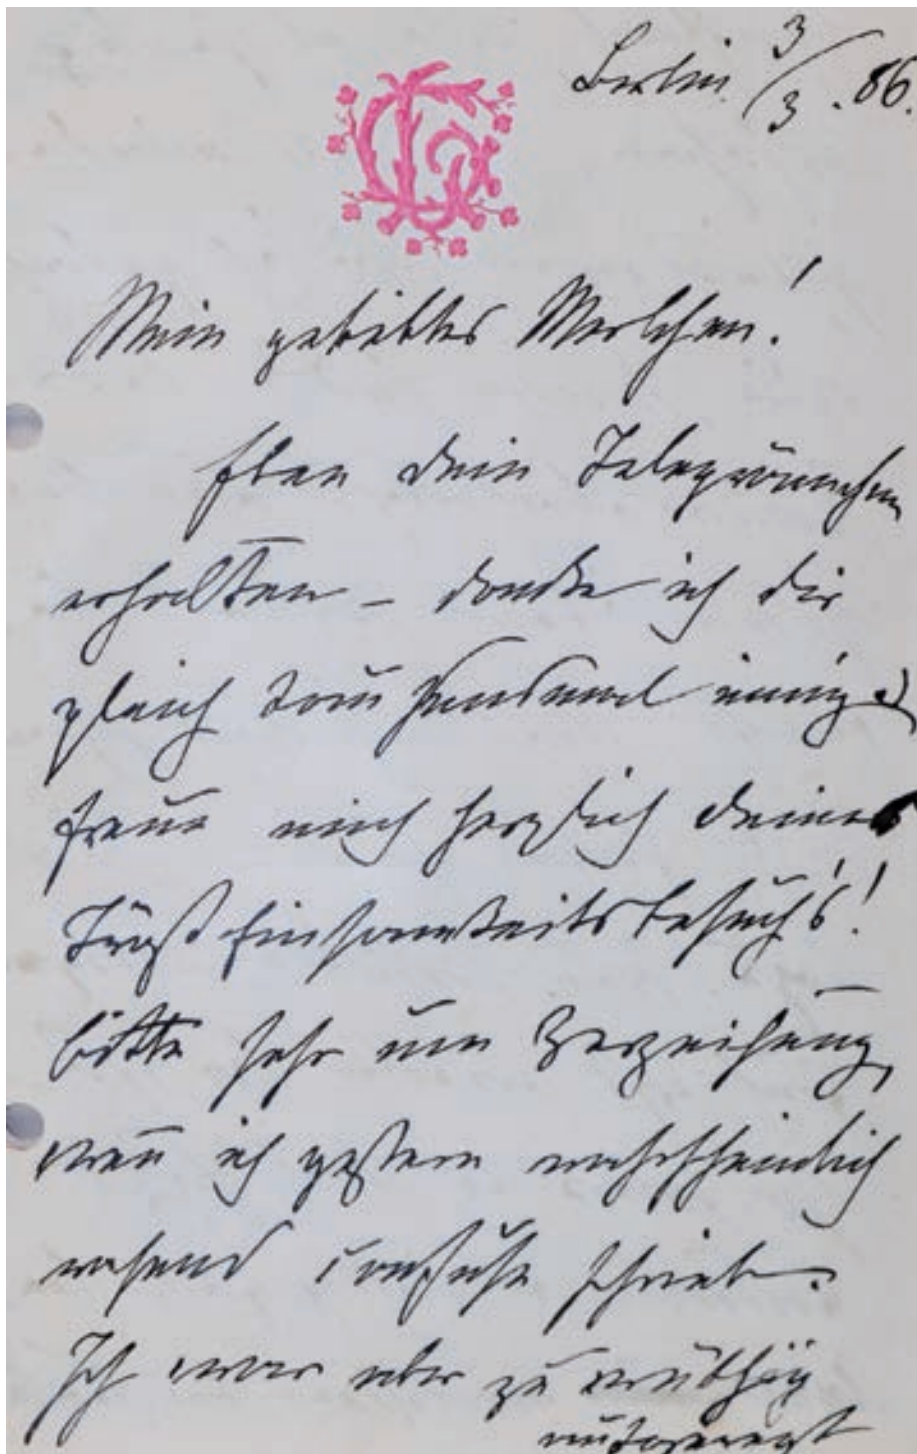 Berlin 3/3. 86.
Mein geliebtes Merlchen!
Eben dein Telegrämmchen
erhalten – danke ich dir
gleich tausendmal innig &
freue mich herzlich deines
Einsamkeitsbesuch's!
bitte sehr um Verzeihung,
wenn ich gestern wahrscheinlich
rasend confuse schrieb.
Ich war aber zu
aufgeregt